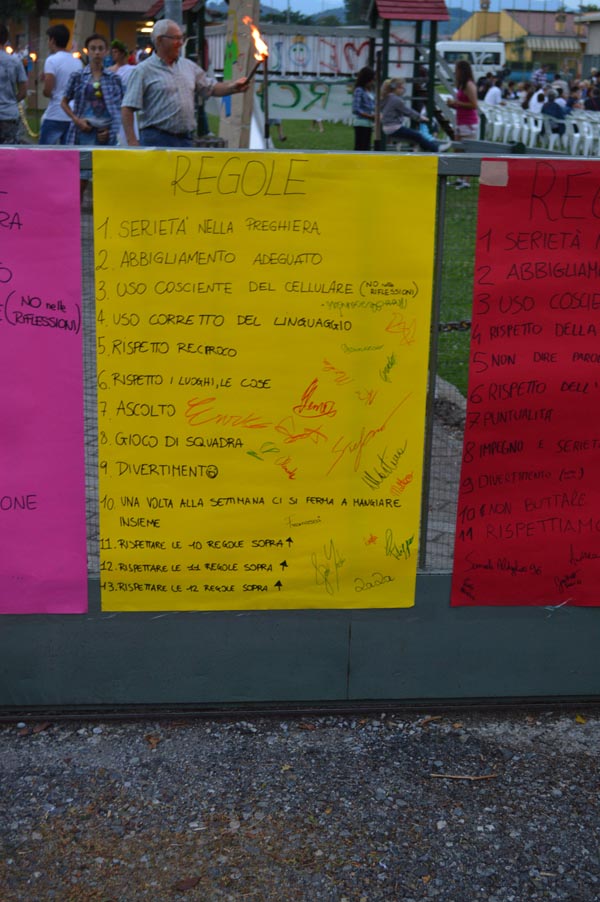 REGOLE
1. SERIETÀ NELLA PREGHIERA
2. ABBIGLIAMENTO ADEGUATO
3. USO COSCIENTE DEL CELLULARE (NO nelle RIFLESSIONI)
4. USO CORRETTO DEL LINGUAGGIO
5. RISPETTO RECIPROCO
6. RISPETTO I LUOGHI, LE COSE
7. ASCOLTO
8. GIOCO DI SQUADRA
9. DIVERTIMENTO
10. UNA VOLTA ALLA SETTIMANA CI SI FERMA A MANGIARE
INSIEME
11. RISPETTARE LE 10 REGOLE SOPRA ↑
12. RISPETTARE LE 11 REGOLE SOPRA ↑
13. RISPETTARE LE 12 REGOLE SOPRA ↑
(NO nelle
RIFLESSIONI)
IONE
REG
1 SERIETÀ
2 ABBIGLIAM
3 USO COSCIE
4 RISPETTO DELLA
5 NON DIRE PARO
6 RISPETTO DELL'
7 PUNTUALITÀ
8 IMPEGNO E SERIETÀ
9 DIVERTIMENTO
10 NON BUTTARE
11 RISPETTIAMO